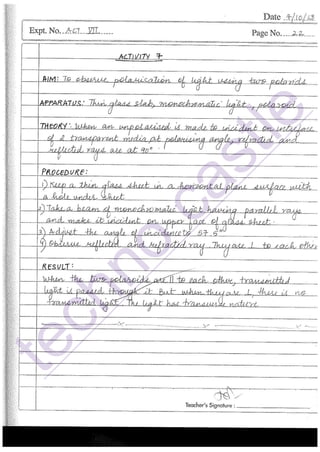 Date 4/10/23
Expt. No. ACT VII
Page No. 22
ACTIVITY 7
AIM: To observe polarisation of light using two polaroids
APPARATUS: Thin glass slab, monochromatic light, polaroid
THEORY: When an unpolarised is made to incident on interface
of 2 transparent media, at polarising angle, refracted and
reflected rays are at 90°
PROCEDURE:
1) Keep a thin glass sheet in a horizontal plane surface with
a hole under sheet
2) Take a beam of monochromatic light having parallel rays
and make it incident on upper face of glass sheet
3) Adjust the angle of incidence to 57.5°
4) Observe reflected and refracted ray. They are ⊥ to each other
RESULT:
When the two polaroids are || to each other, transmitted
light is passed through it But when they are ⊥, there is no
transmitted light. The light has transverse nature
Teacher's Signature :
technorcastle